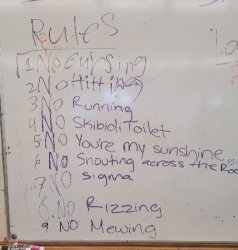 Rules
1 No Cursing
2 No Hitting
3 NO Running
4 NO Skibidi Toilet
5 NO You're my sunshine
6 No Shouting across the Roo
7 NO sigma
8. NO Rizzing
9. NO Mewing